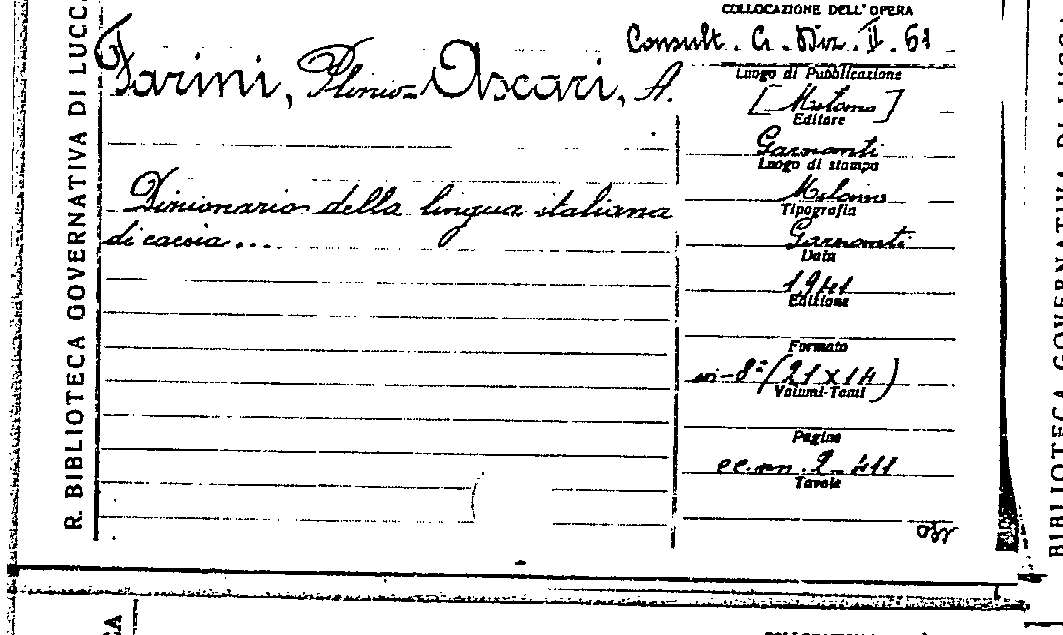 COLLOCAZIONE DELL' OPERA
Consult. G. Diz. II. 61
R. BIBLIOTECA GOVERNATIVA DI LUCCA
Farini, Plinio = Ascari, A.
Dizionario della lingua italiana
di caccia...
Luogo di Pubblicazione
[Milano]
Editore
Garzanti
Luogo di stampa
Milano
Tipografia
Garzanti
Data
1941
Edizione
Formato
in-8° (21 x 14)
Volumi-Tomi
Pagine
cc. nn. 2-411
Tavole
BIBLIOTECA GOVERNATIVA DI LUCCA